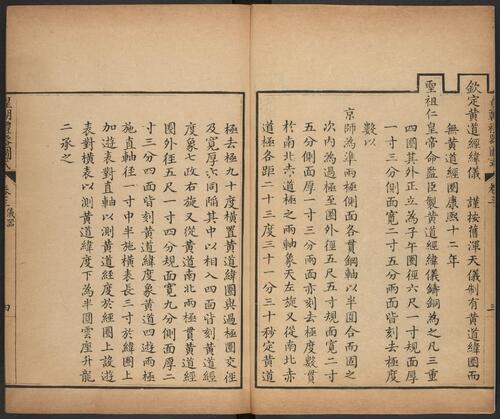 欽定黄道經緯儀　謹按舊渾天儀制有黄道經圈而
無黄道緯圈康熙十二年
聖祖仁皇帝命監臣製黄道經緯儀鑄銅為之凡三重
四圈其外正立為子午圈徑六尺一寸規面厚
一寸三分側面寬二寸五分兩面皆刻去極度
數以
京師為準兩極側面各貫鋼軸以半圓合而固之
次内為過極至圈外徑五尺五寸規面寬二寸
五分側面厚一寸三分兩面亦刻去極度數貫
於南北赤道極之兩軸象天左旋又從南北赤
道極各距二十三度三十一分三十秒定黄道
極去極九十度横置黄道緯圈與過極圈交徑
及寬厚亦同陷其中以相入四面皆刻黄道經
度象七政右旋又從黄道南北兩極貫黄道經
圈外徑五尺一寸四分規面寬九分側面厚二
寸三分四面皆刻黄道緯度象黄道四遊兩極
施直軸徑一寸中半施横表長三寸於緯圈上
加遊表對直軸以測黄道經度於經圈上設遊
表對横表以測黄道緯度下為半圓雲座升龍
二承之
卷三
儀器
四